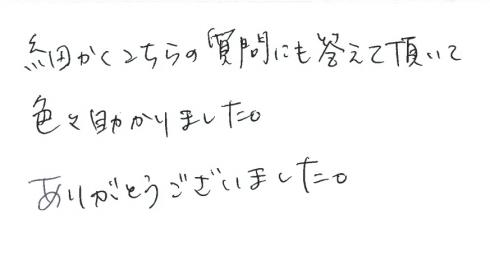 細かくこちらの質問にも答えて頂いて
色々助かりました。
ありがとうございました。